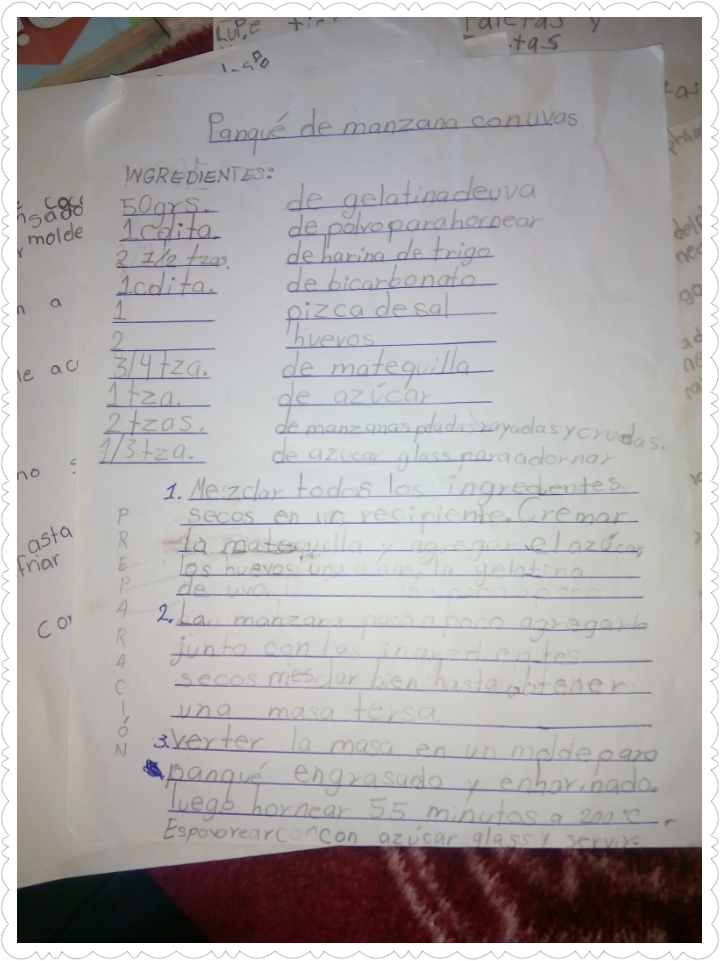 Lupe
Taletas y
tas
Panqué de manzana con uvas
INGREDIENTES:
50grs. de gelatina de uva
1cdita. de polvo para hornear
2 1/2 tzas. de harina de trigo
1cdita. de bicarbonato
1 pizca de sal
2 huevos
3/4 tza. de matequilla
1 tza. de azúcar
2 tzas. de manzanas peladas rayadas y crudas.
1/3 tza. de azucar glass para adornar
PREPARACIÓN
1. Mezclar todos los ingredientes
secos en un recipiente. Cremar
la matequilla y agregar el azúcar,
los huevos uno a uno, la gelatina
de uva.
2. La manzana poco a poco agregarla
junto con los ingredientes
secos mesclar bien hasta obtener
una masa tersa.
3. verter la masa en un molde para
panqué engrasado y enharinado.
luego hornear 55 minutos a 200°C.
Espovorear con con azúcar glass y servir.
molde
n a
le
no
asta
friar